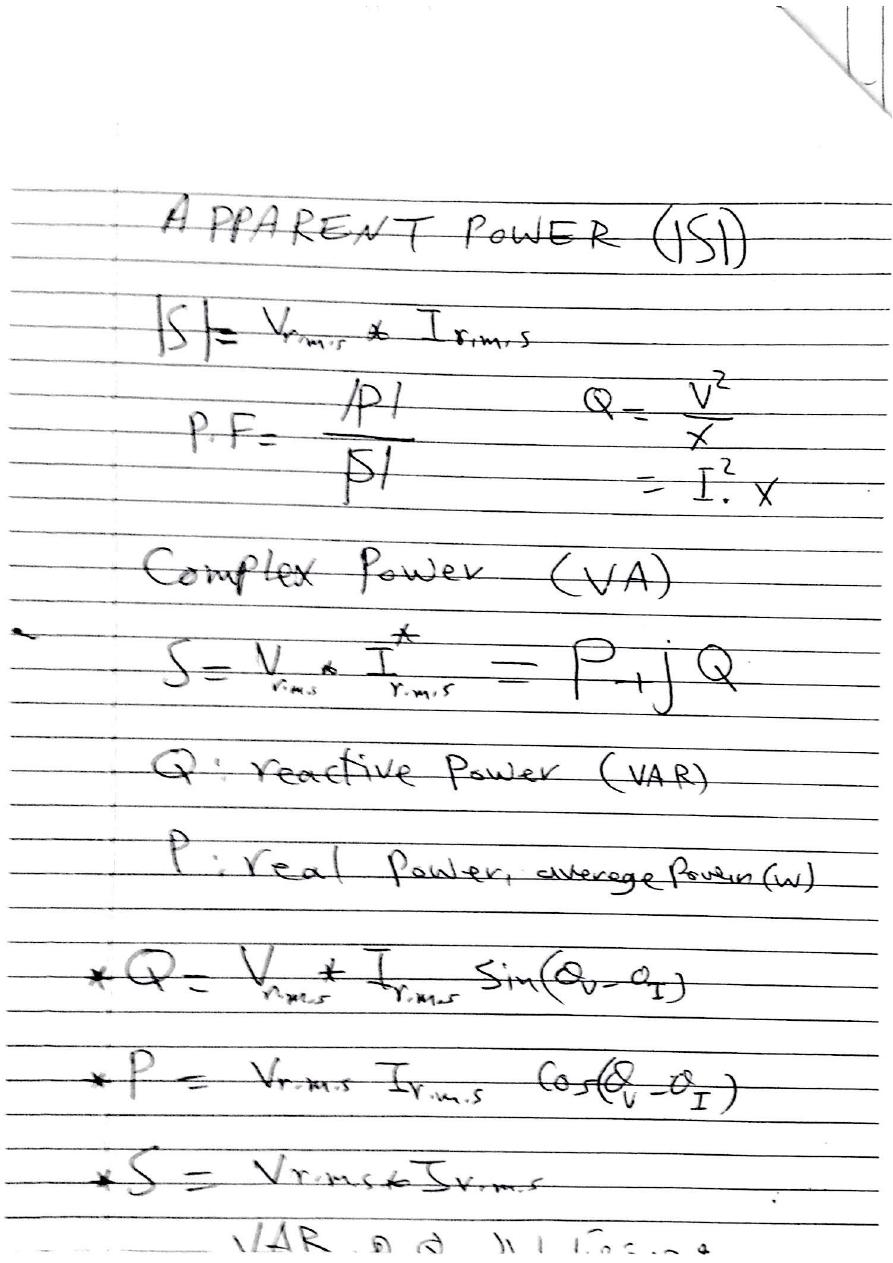 APPARENT POWER (|S|)
|S| = Vr.m.s * Ir.m.s
P.F = |P| / |S|
Q = V² / X
= I². X
Complex Power (VA)
S = Vr.m.s * I*r.m.s = P + jQ
Q : reactive Power (VAR)
P : real Power, average Power (W)
* Q = Vr.m.s * Ir.m.s Sin(θv - θI)
* P = Vr.m.s Ir.m.s Cos(θv - θI)
* S = Vr.m.s * Ir.m.s
VAR